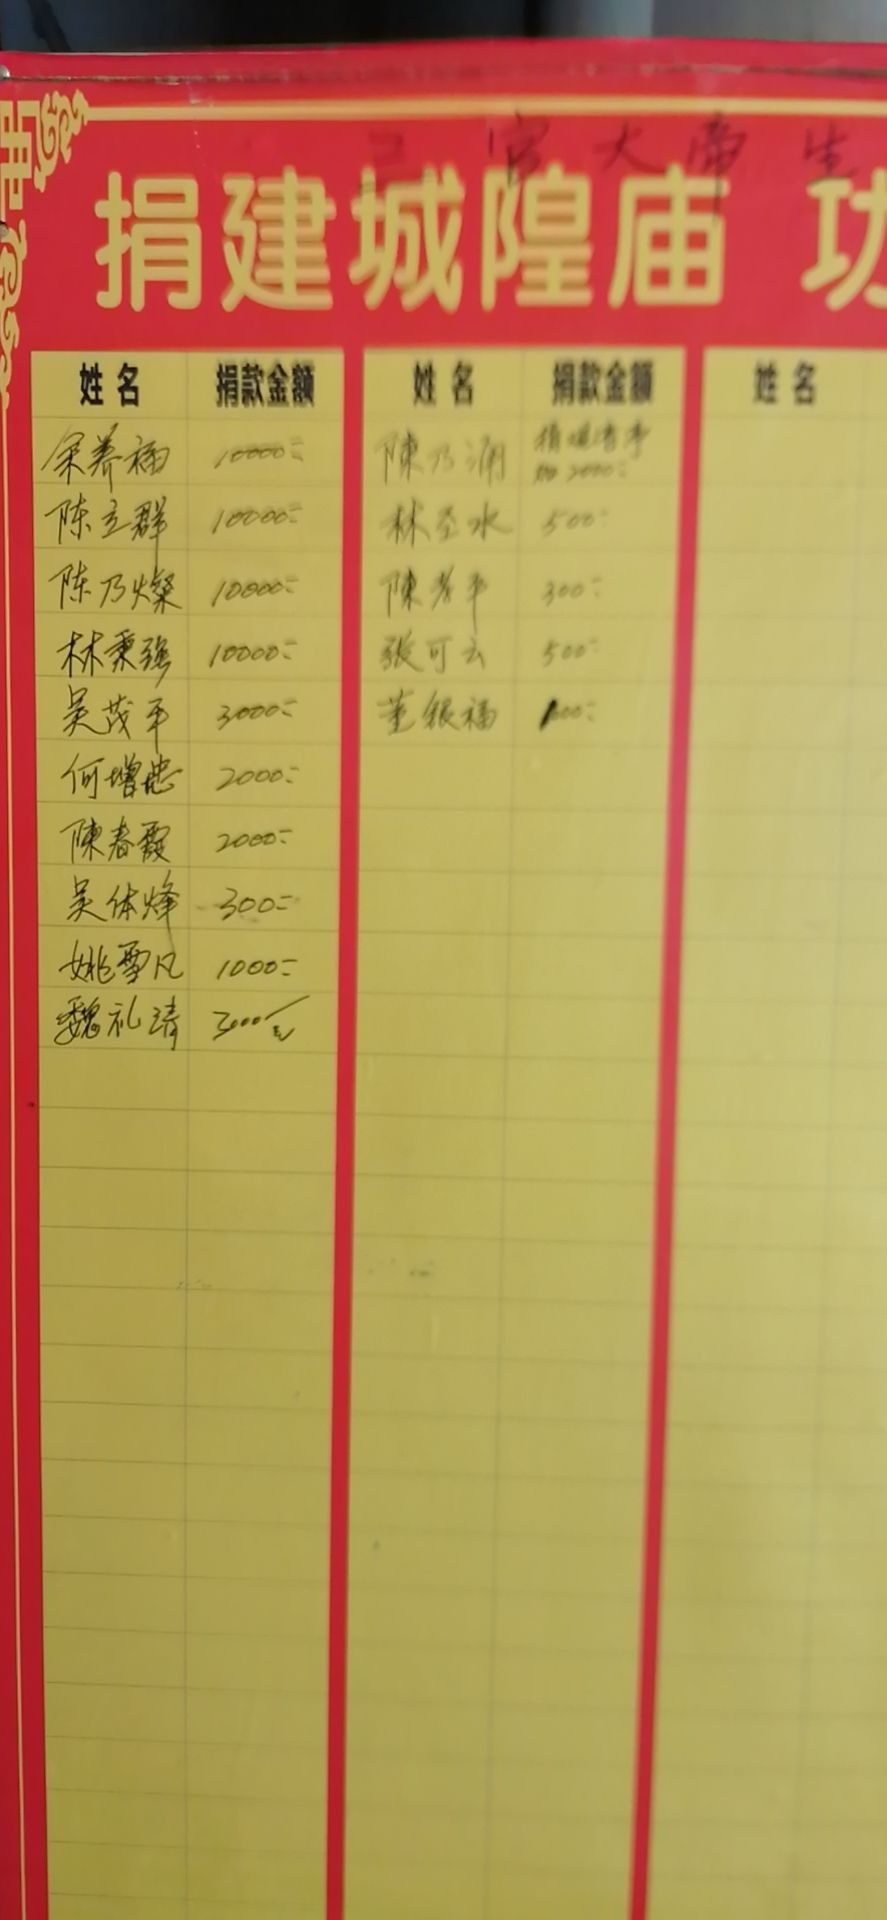 三官大帝生
捐建城隍庙 功
姓名 捐款金额 姓名 捐款金额 姓名
余养福 10000
陈立群 10000 林圣水 500
陈乃燦 10000 陳 平 300
林秉强 10000 張可云 500
吴茂平 3000 董银福
何增忠 2000
陳春霞 2000
吴体烽 300
姚雪凡 1000
魏礼清 3000